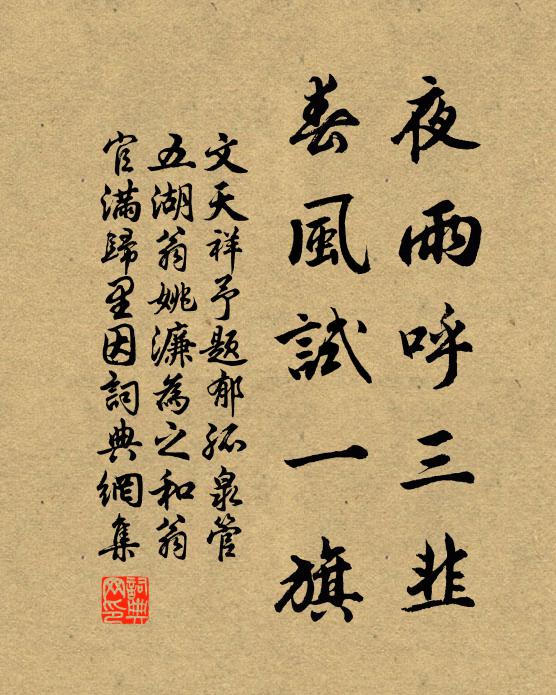 夜雨呼三韭
春風試一旗
文天祥予題郁孤泉管
五湖翁姚濂為之和翁
官滿歸里因詞典網集
詞典網印